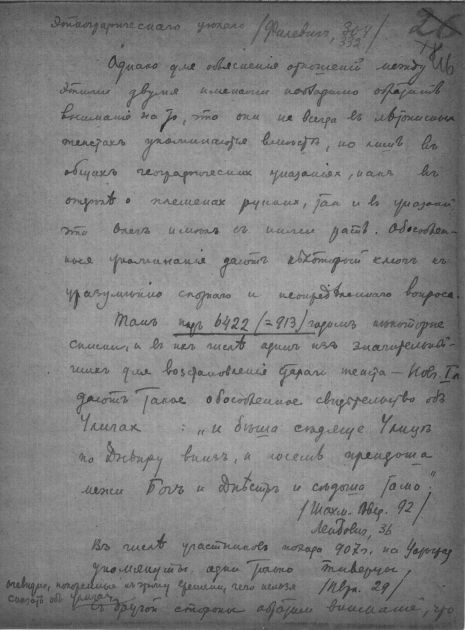 Этнографическаго /Филевич, 307/332/
26
Однако для объясненія отношеній между
этими двумя именами необходимо обратить
вниманіе на то, что они не всегда в лѣтописных
текстах упоминаются вмѣстѣ, но лишь въ
общих географических указаніях, как в
о племенах руских, так и в указаній
что Олегъ имяше съ ними рать. Обособлен-
ныя упоминанія даютъ нѣкоторый ключъ къ
уразумѣнію спорнаго и неопредѣленнаго вопроса.
Такъ подъ 6422 (=913) годомъ нѣкоторые
списки, и въ их числѣ одинъ изъ значительнѣй-
ших для возстановленія текста — Новг. I л.
даютъ такое обособленное свидѣтельство объ
Уличах : „и бѣша сѣдяще Улицѣ
по Днѣпру внизъ, и посемъ преидоша
межи Богъ и Днѣстръ и сѣдоша тамо".
/Шахм. Введ. 92/
Лейбович, 36
Въ числѣ участников похода 907 г. на Царьград
упомянуты одни только тиверцы,
очевидно, покоренные къ этому времени, чего нельзя /Лавр. 29/
сказать объ уличах.
Съ другой стороны обратим вниманіе, что